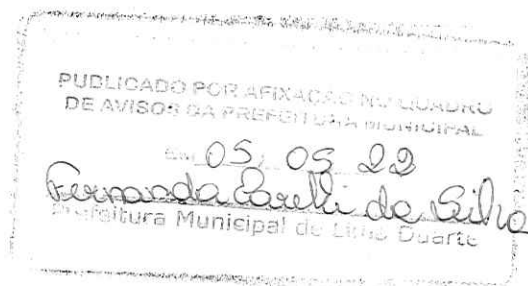 PUBLICADO POR AFIXAÇÃO NO QUADRO
DE AVISOS DA PREFEITURA MUNICIPAL
Em 05, 05 22
Fernanda da Silva
Prefeitura Municipal de Lima Duarte